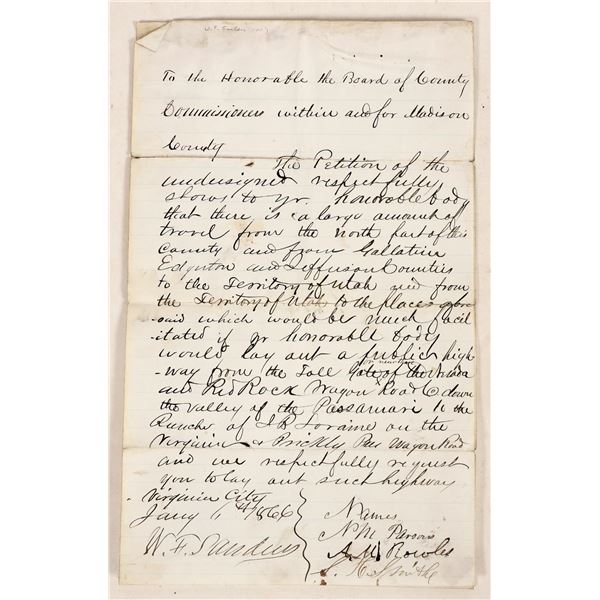 To the Honorable the Board of County
Commissioners within and for Madison
County
The Petition of the
undersigned respectfully
shows to yr. honorable body
that there is a large amount of
travel from the north part of this
county and from Gallatin
Edgerton and Jefferson Counties
to the Territory of Utah and from
the Territory of Utah to the places afore
-said which would be much facil
-itated if yr honorable body
would lay out a public high-
-way from the Toll Gate of the
and Red Rock Wagon Road Co down
the valley of the Passamari to the
Ranche of J.R. Loraine on the
Virginia & Prickly Pear Wagon Road
and we respectfully request
you to lay out such highway
Virginia City
Jany 6th 1866
W. F. Sanders
Names
N M Parsons
A. M. Rowles